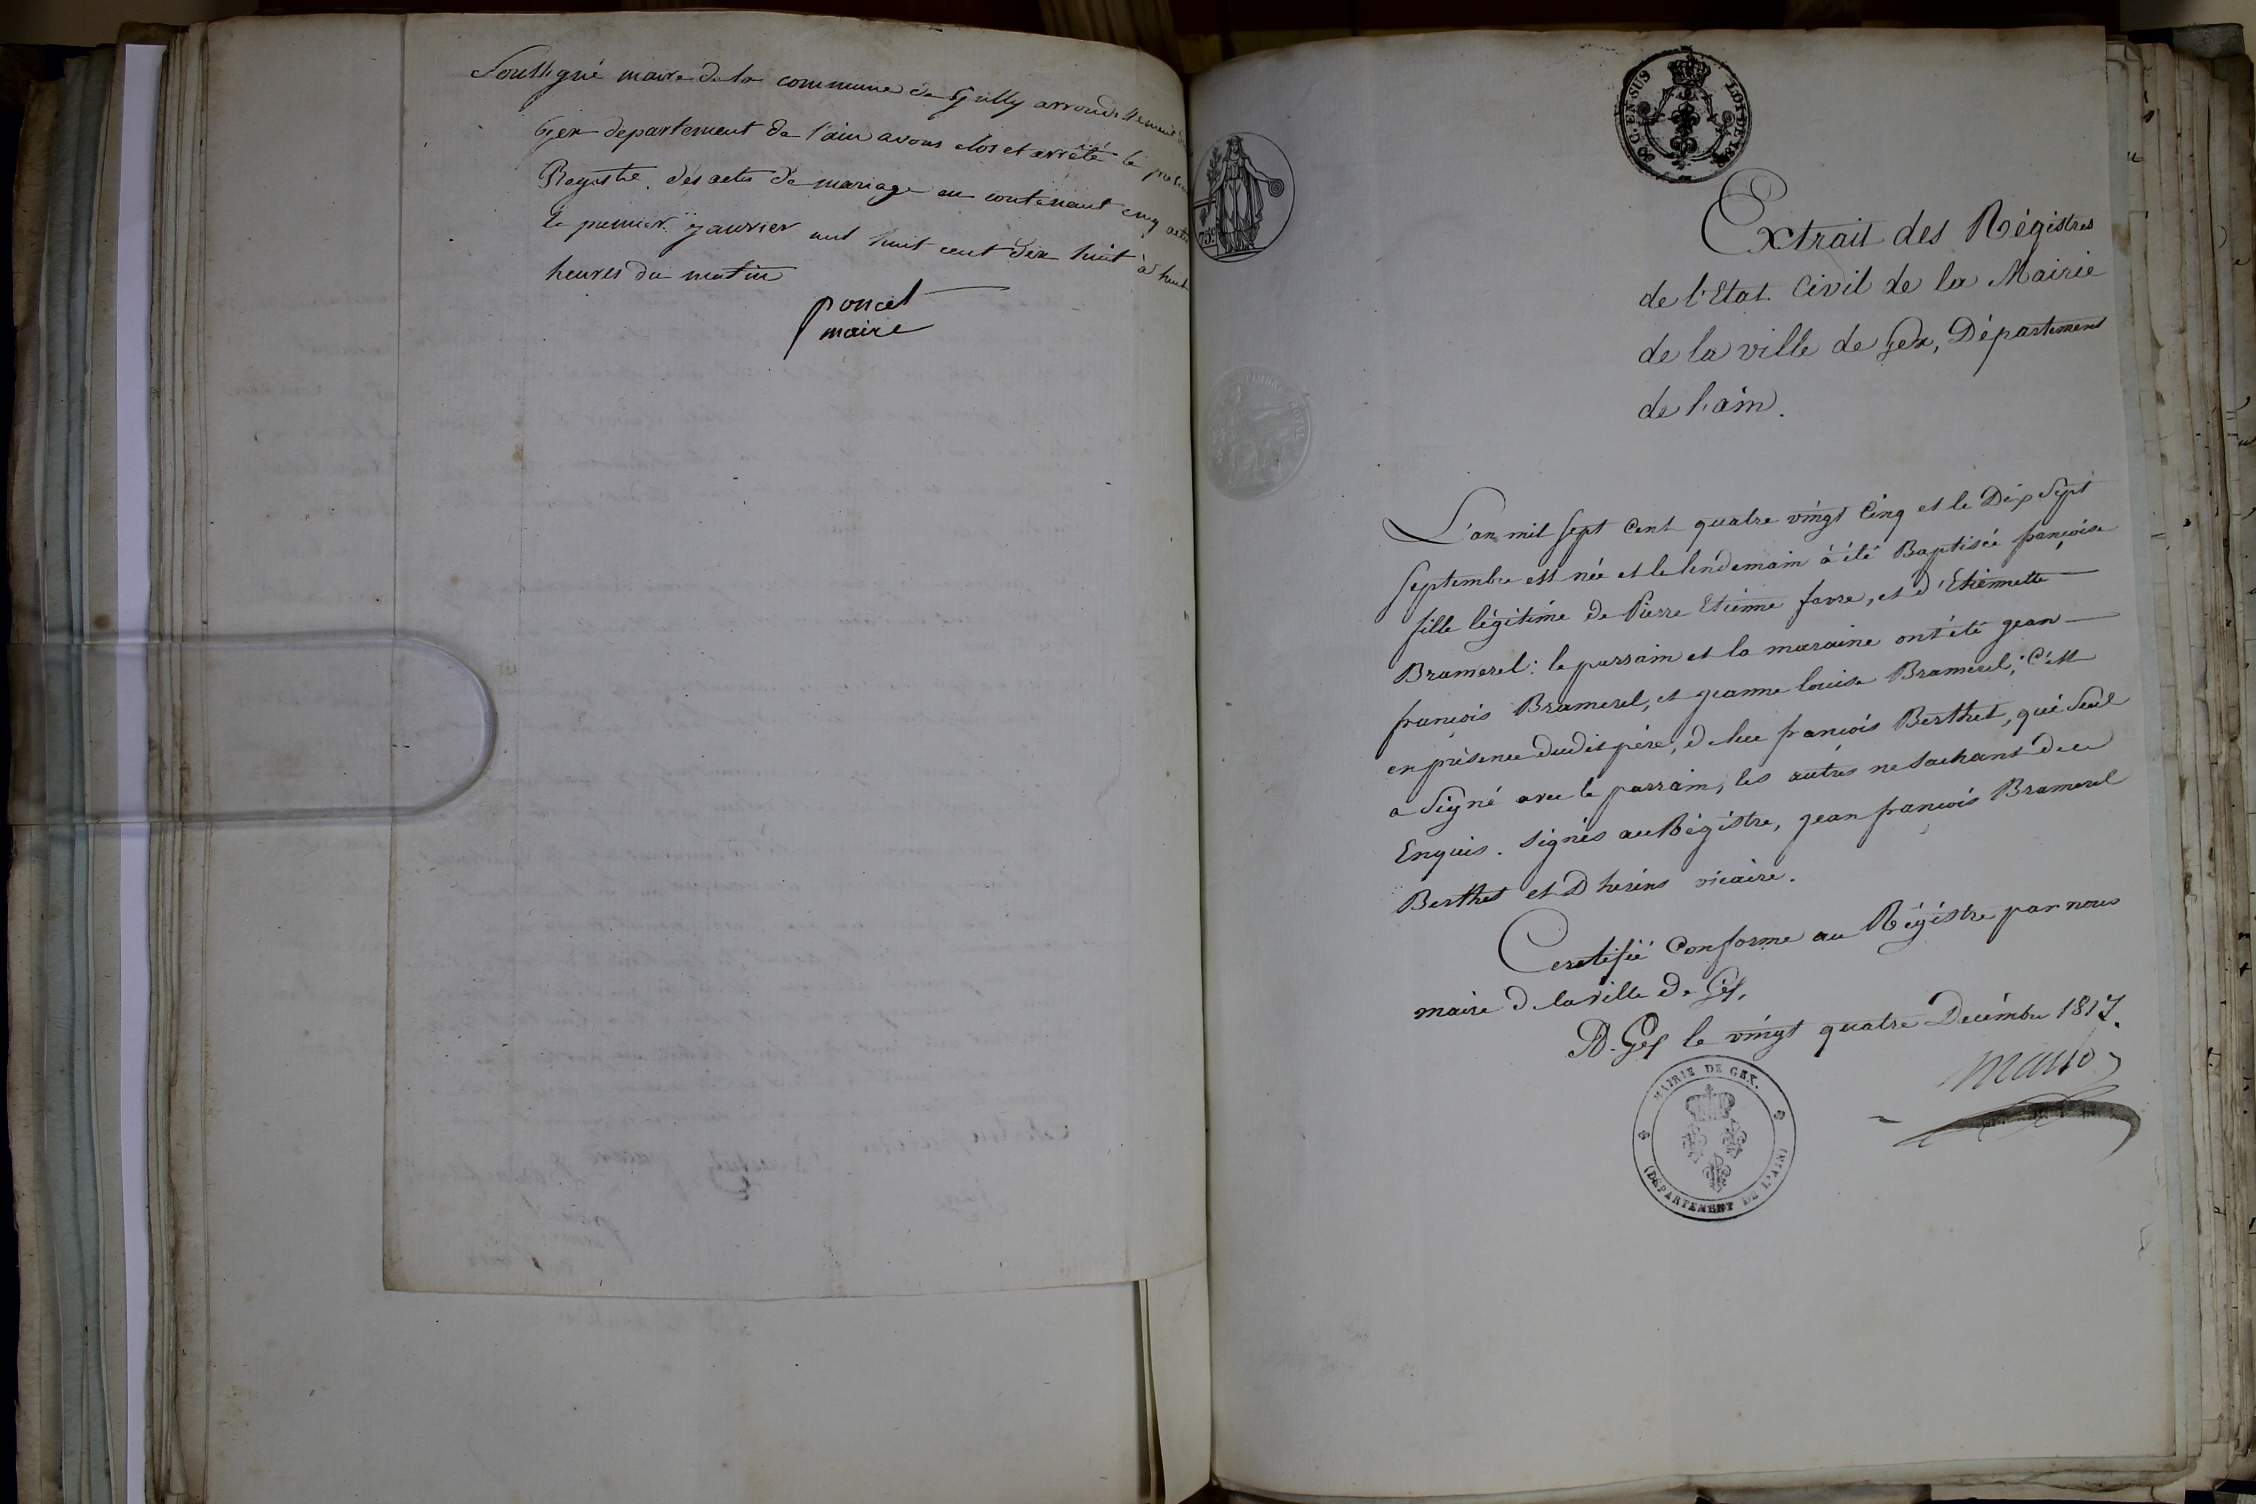 Soussigné maire de la commune de Grilly arrondissement de
Gex departement de l'ain avons clos et arrêté le présent
Registre des actes de mariage en contenant cinq actes
le premier janvier mil huit cent dix huit à huit
heures du matin
poncet
maire
EN SUS
LOI DE 18
75c
TIMBRE ROYAL
Extrait des Régistres
de l'Etat Civil de la Mairie
de la ville de Gex, Département
de l'ain.
L'an mil sept cent quatre vingt Cinq et le Dix sept
septembre est née et le lendemain à été Baptisée françoise
fille légitime de Pierre Etienne favre, et d'Etiennette
Bramerel: le parrain et la maraine ont été jean
françois Bramerel, et jeanne louise Bramerel; C'est
en présence dudit père, de françois Berthet, qui seul
a signé avec le parrain, les autres ne sachant de ce
Enquis. signés au Régistre, jean françois Bramerel
Berthet et Dherens vicaire.
Certifié Conforme au Régistre par nous
maire de la ville de Gex,
A Gex le vingt quatre Decémbre 1817.
MAIRIE DE GEX.
(DEPARTEMENT DE L'AIN)